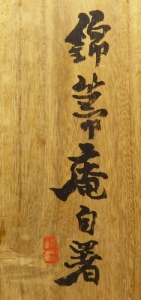 錦芾庵自署